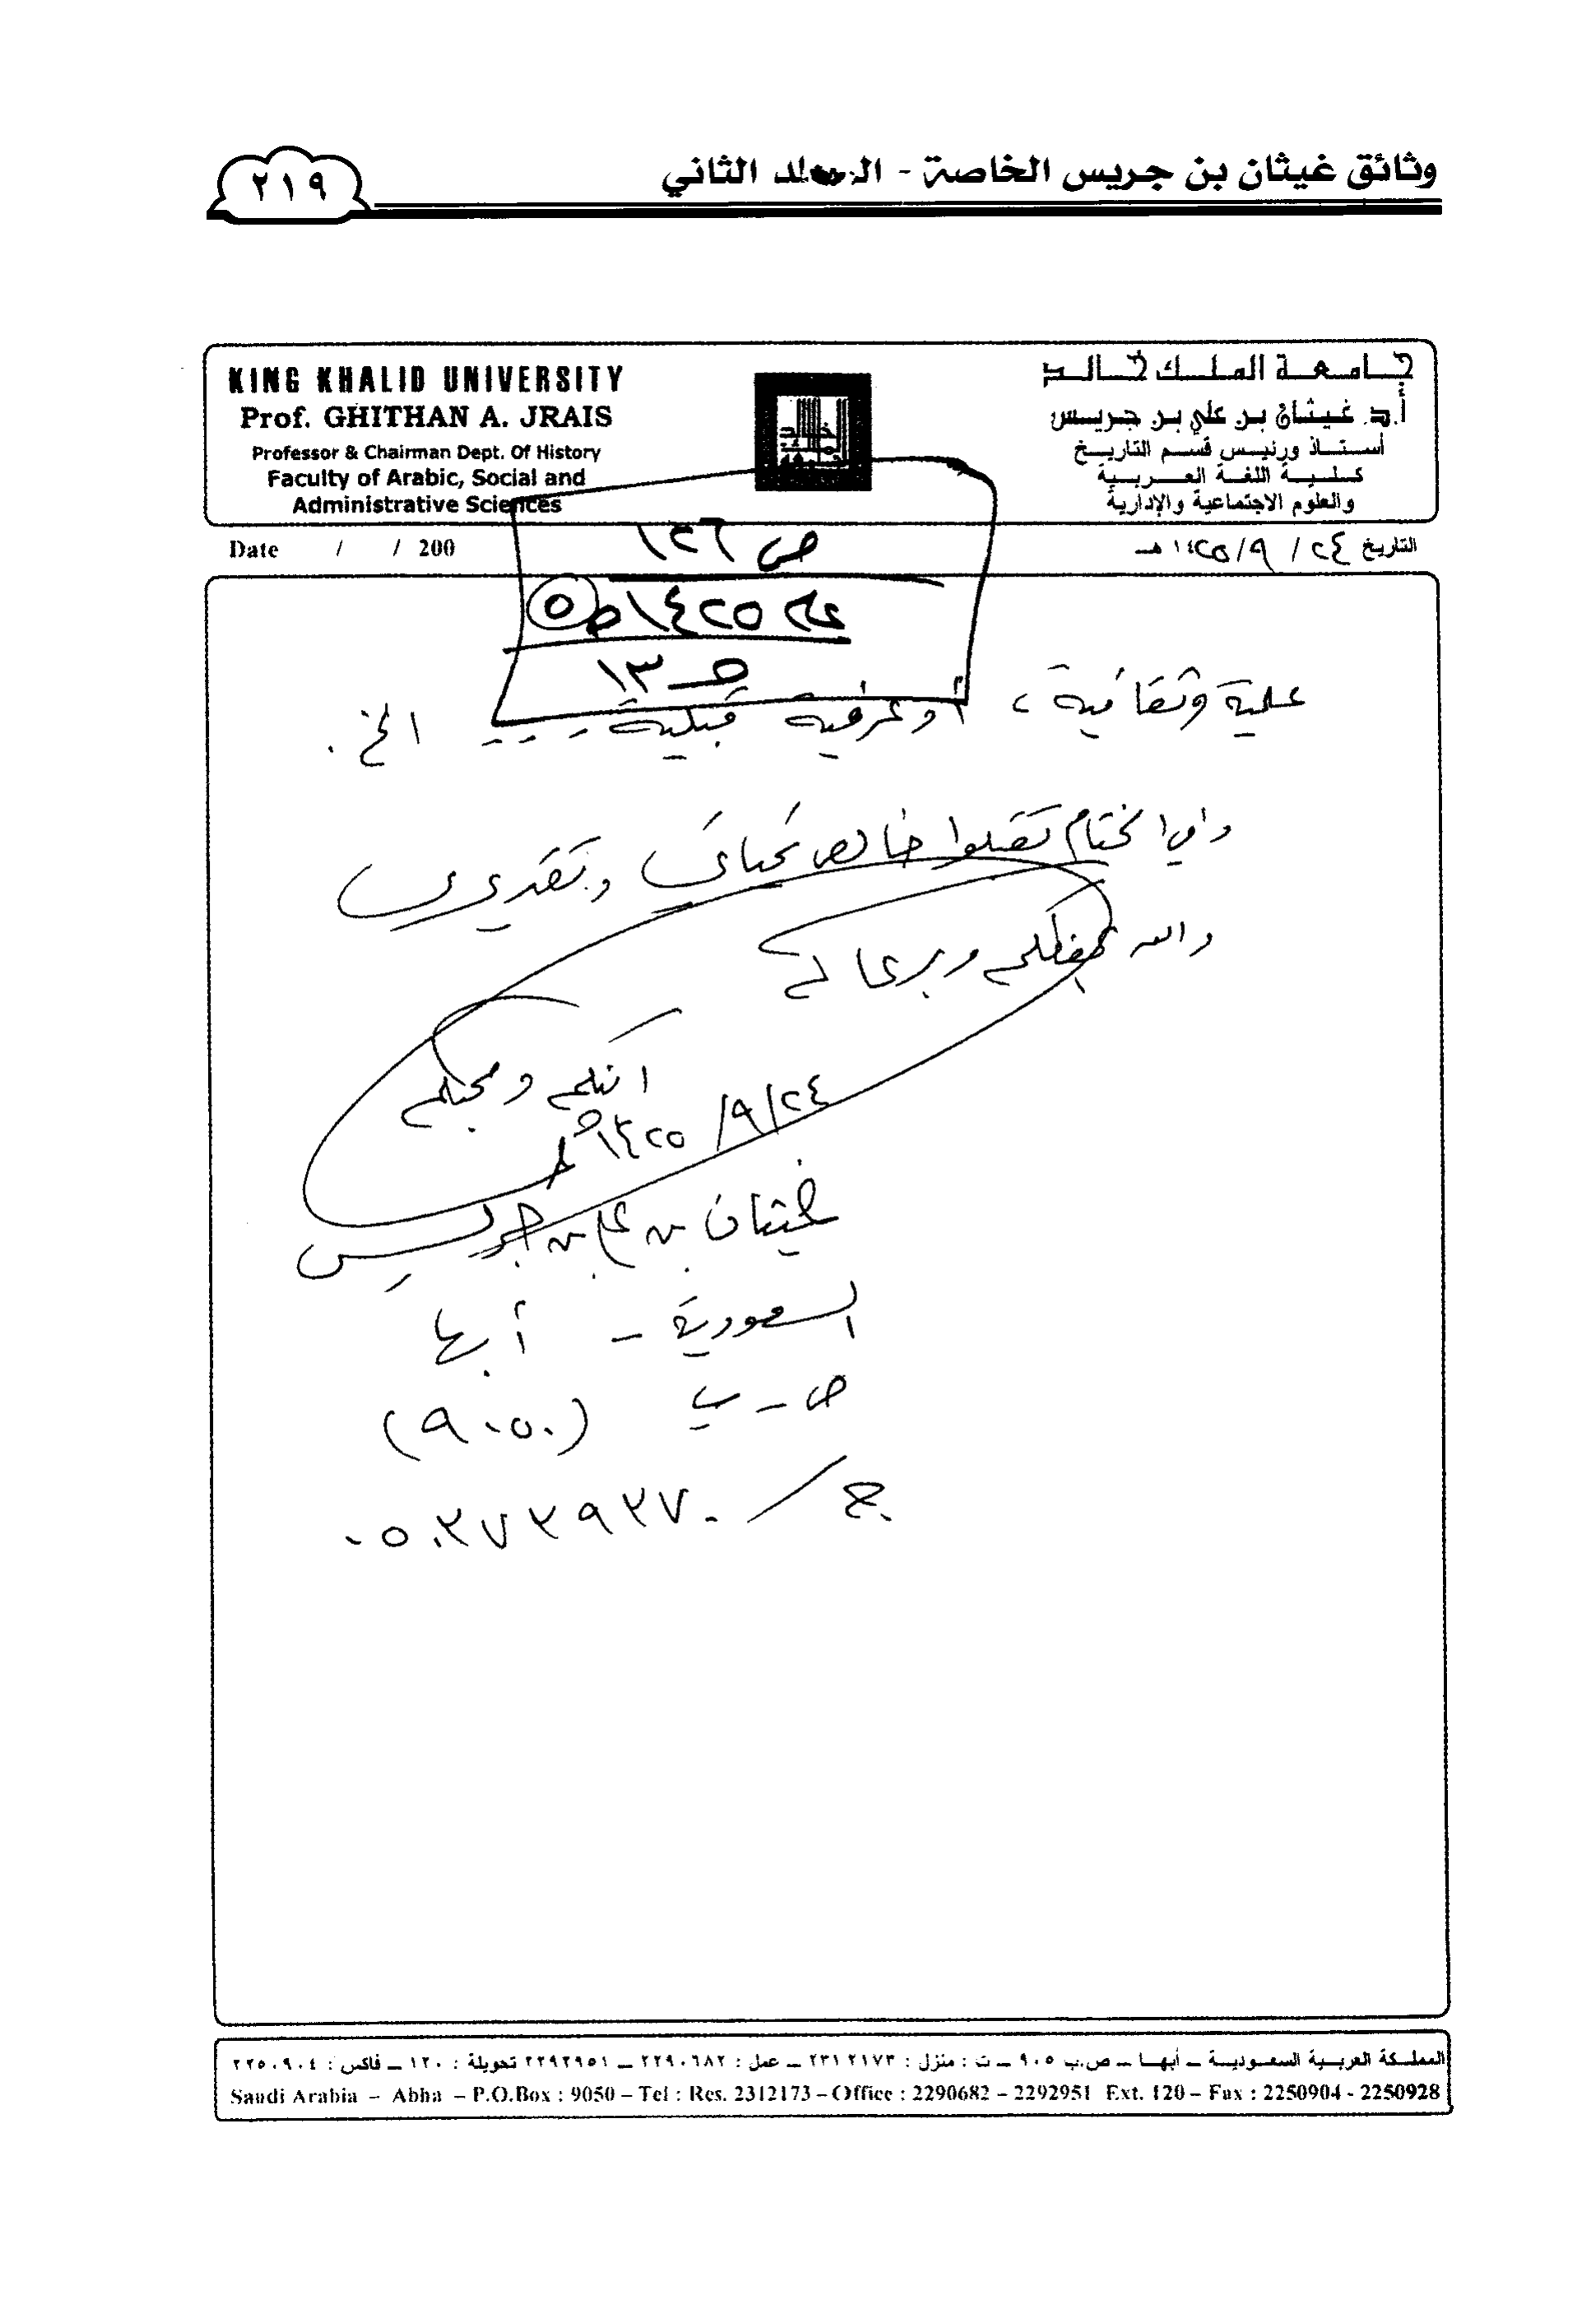 وثائق غيثان بن جريس الخاصة - المجلد الثاني
٢١٩
KING KHALID UNIVERSITY
Prof. GHITHAN A. JRAIS
Professor & Chairman Dept. Of History
Faculty of Arabic, Social and
Administrative Sciences
جامعة الملك خالد
أ.د. غيثان بن علي بن جريس
أستاذ ورئيس قسم التاريخ
كلية اللغة العربية
والعلوم الاجتماعية والإدارية
Date / / 200
التاريخ ٢٤ / ٩ / ١٤٢٥ هـ
ص ١٣٦
عام ١٤٢٥هـ ٥
ص ١٣
علمية وثقافية ، أو عرفية قبلية .... الخ .
وفي الختام تقبلوا خالص تحياتي وتقديري
والله يحفظكم ويرعاكم
ومحبكم
٢٤/٩/١٤٢٥هـ
غيثان بن علي بن جريس
السعودية - أبها
ص - ب (٩٠٥٠)
ج / ٠٥٠٣٧٣٩٣٧٠
المملكة العربية السعودية – أبها – ص.ب ٩٠٥ – ت : منزل : ٢٣١٢١٧٣ – عمل : ٢٢٩٠٦٨٢ – ٢٢٩٢٩٥١ تحويلة : ١٢٠ – فاكس : ٢٢٥٠٩٠٤
Saudi Arabia – Abha – P.O.Box : 9050 – Tel : Res. 2312173 – Office : 2290682 – 2292951 Ext. 120 – Fax : 2250904 - 2250928